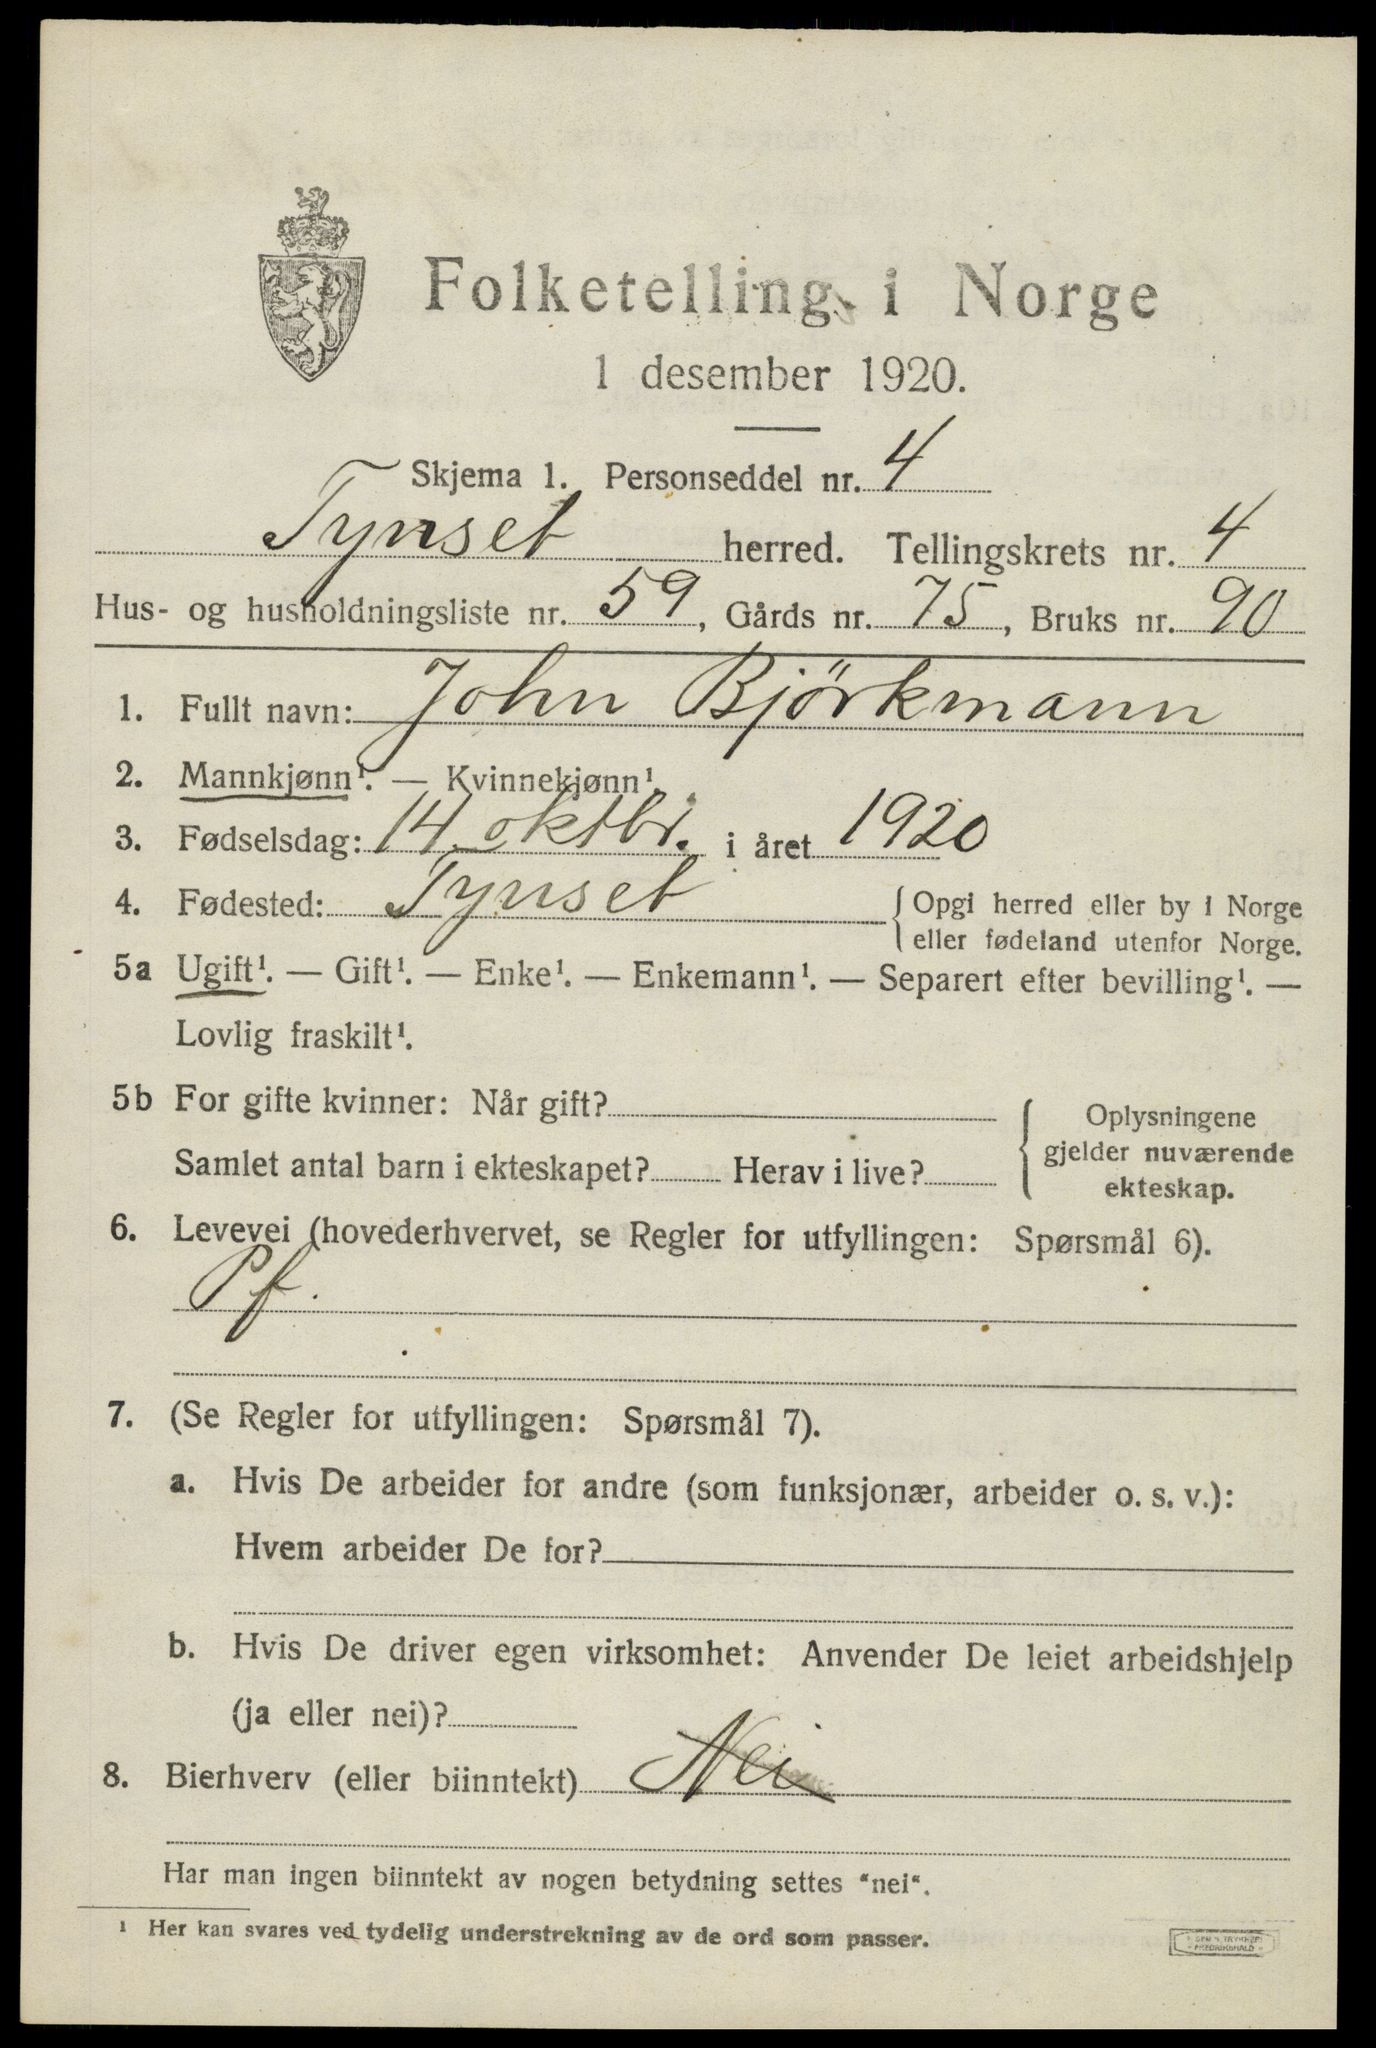 Folketelling i Norge
1 desember 1920.
Skjema 1. Personseddel nr. 4
Tynset herred. Tellingskrets nr. 4
Hus- og husholdningsliste nr. 59, Gårds nr. 75, Bruks nr. 90
1. Fullt navn: John Björkmann
2. Mannkjønn¹. — Kvinnekjønn¹.
3. Fødselsdag: 14. oktbr. i året 1920
4. Fødested: Tynset { Opgi herred eller by i Norge
eller fødeland utenfor Norge.
5a Ugift¹. — Gift¹. — Enke¹. — Enkemann¹. — Separert efter bevilling¹. —
Lovlig fraskilt¹.
5b For gifte kvinner: Når gift? { Oplysningene
gjelder nuværende
Samlet antal barn i ekteskapet? Herav i live?
ekteskap.
6. Levevei (hovederhvervet, se Regler for utfyllingen: Spørsmål 6).
Pf.
7. (Se Regler for utfyllingen: Spørsmål 7).
a. Hvis De arbeider for andre (som funksjonær, arbeider o. s. v.):
Hvem arbeider De for?
b. Hvis De driver egen virksomhet: Anvender De leiet arbeidshjelp
(ja eller nei)?
8. Bierhverv (eller biinntekt) Nei
Har man ingen biinntekt av nogen betydning settes "nei".
¹ Her kan svares ved tydelig understrekning av de ord som passer.
FREDRIKSHALD